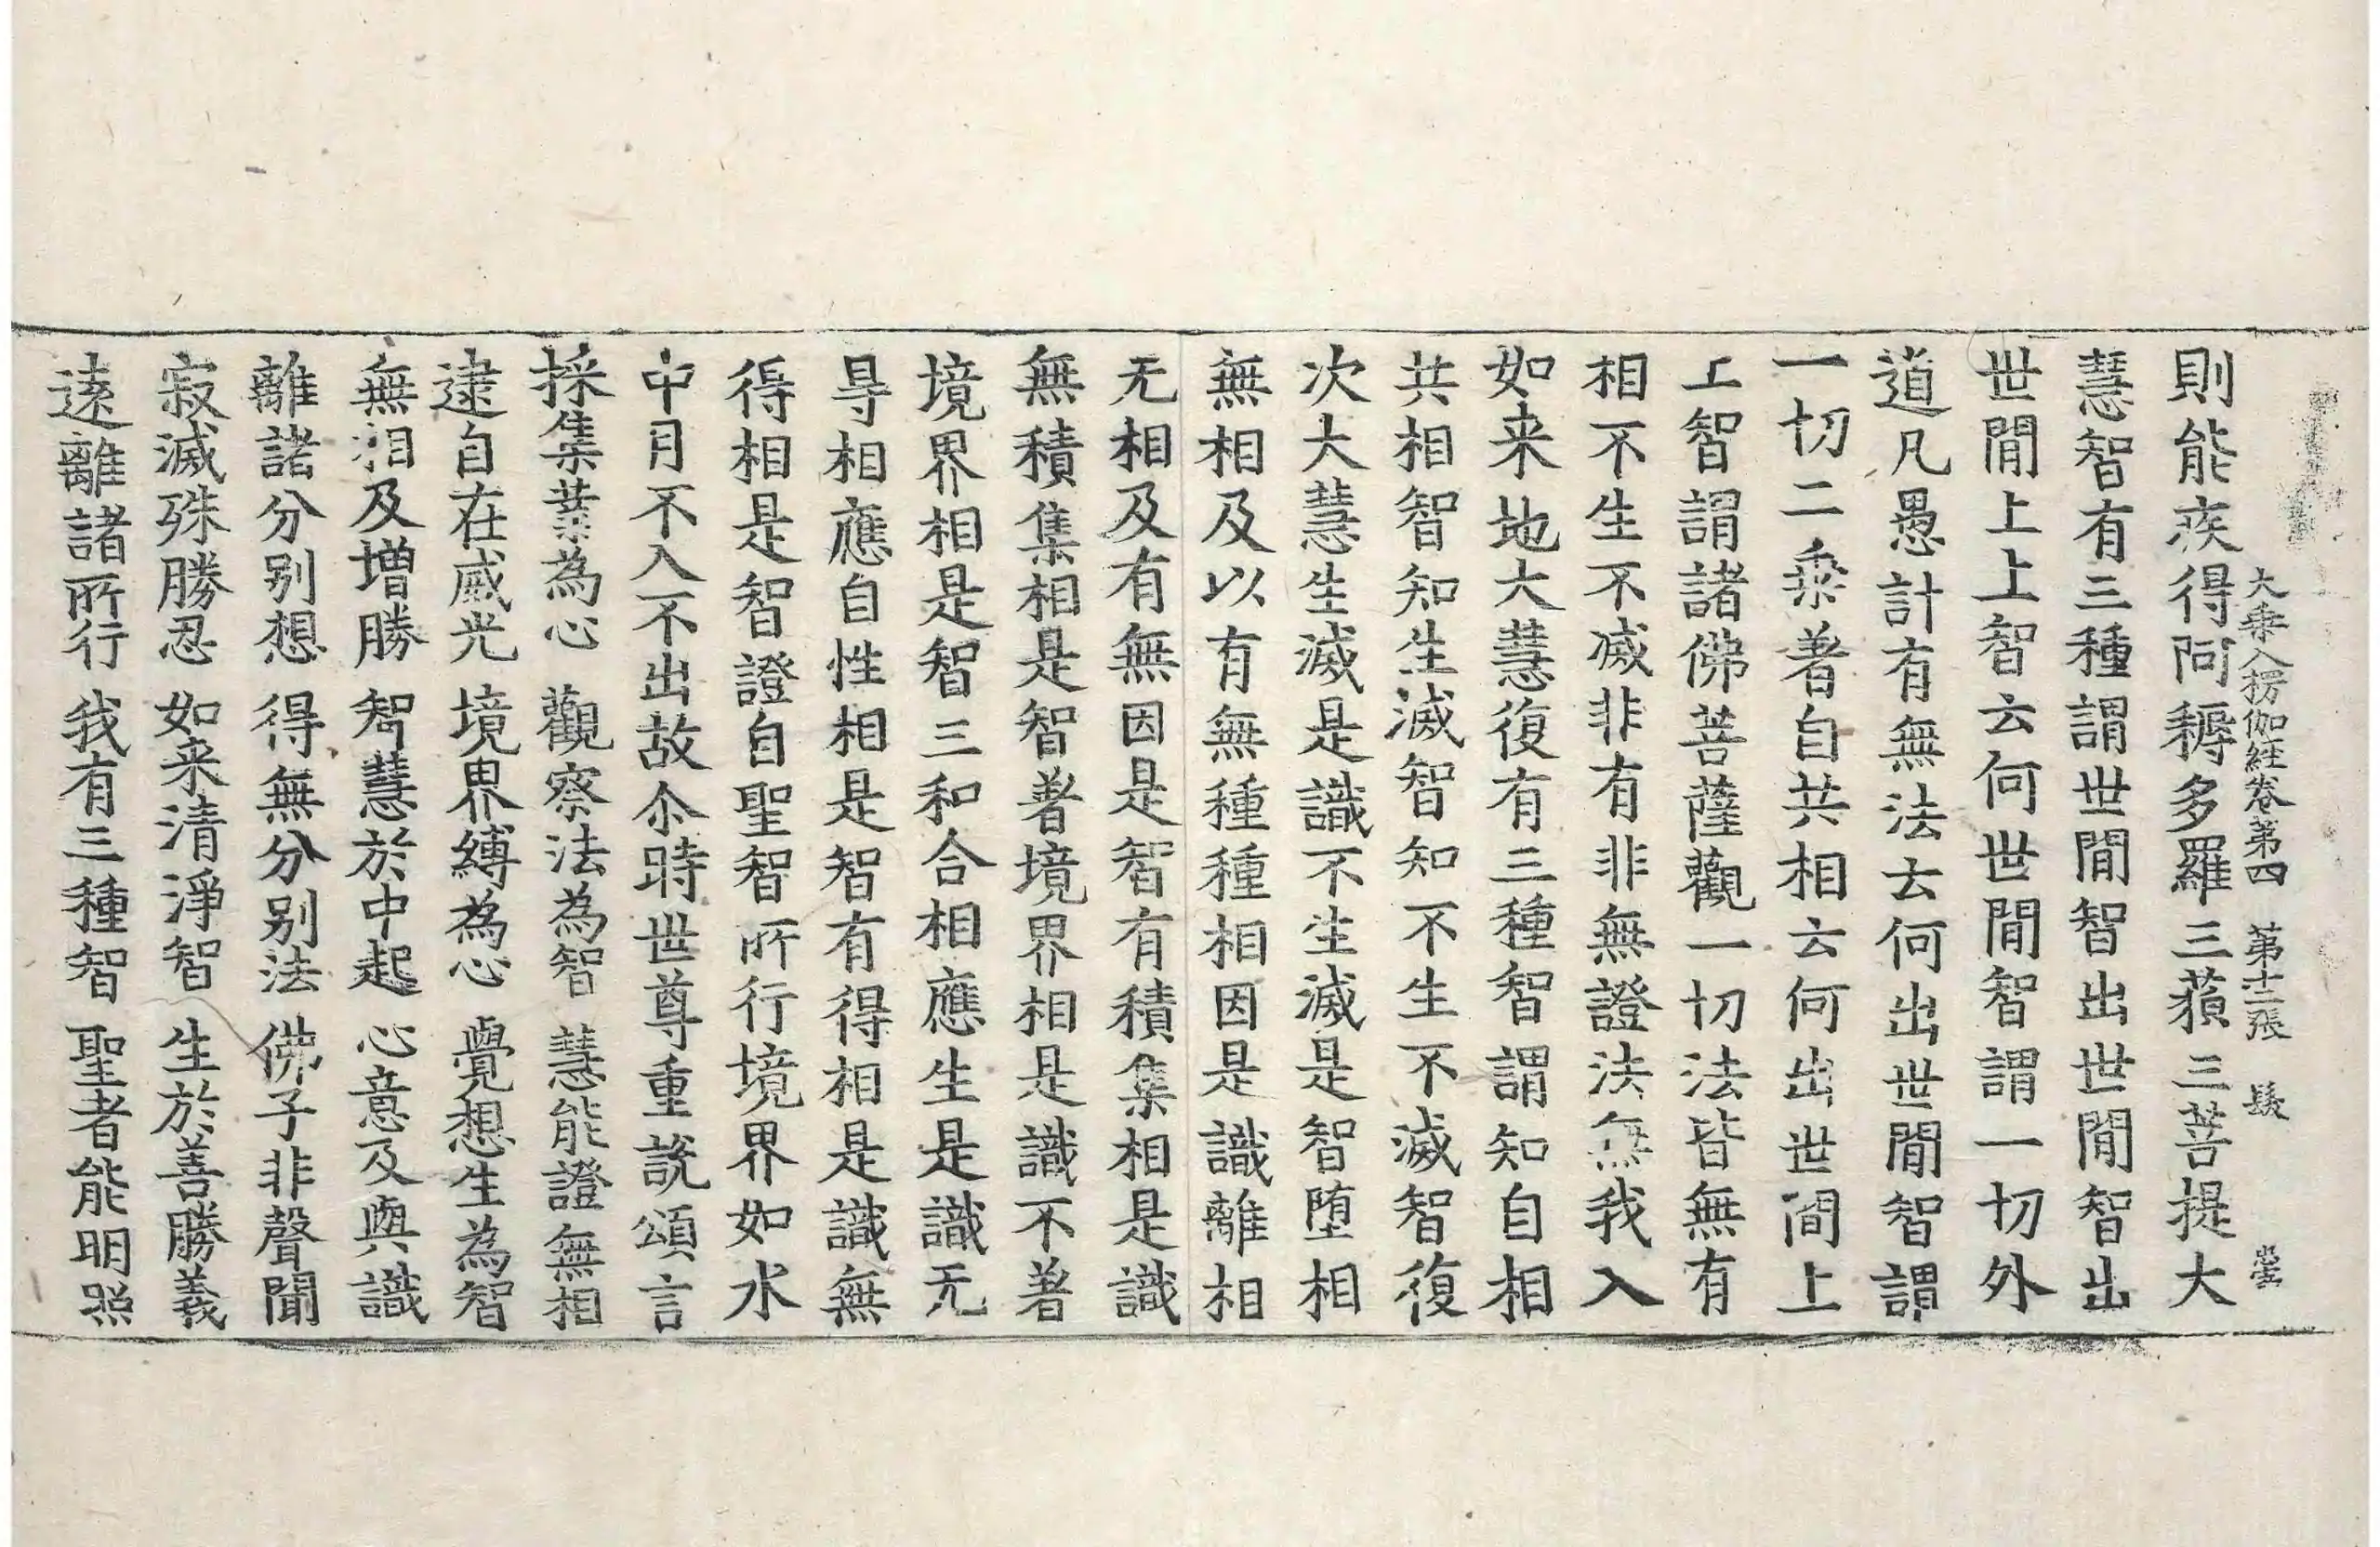 大乘入楞伽經卷第四　第十二張　髮
則能疾得阿耨多羅三藐三菩提大
慧智有三種謂世間智出世間智出
世間上上智云何世間智謂一切外
道凡愚計有無法云何出世間智謂
一切二乘著自共相云何出世間上
上智謂諸佛菩薩觀一切法皆無有
相不生不滅非有非無證法無我入
如来地大慧復有三種智謂知自相
共相智知生滅智知不生不滅智復
次大慧生滅是識不生滅是智墮相
無相及以有無種種相因是識離相
无相及有無因是智有積集相是識
無積集相是智著境界相是識不著
境界相是智三和合相應生是識无
㝵相應自性相是智有得相是識無
得相是智證自聖智所行境界如水
中月不入不出故尒時世尊重說頌言
採集業為心　觀察法為智　慧能證無相
逮自在威光　境界縛為心　覺想生為智
無相及增勝　智慧於中起　心意及與識
離諸分別想　得無分別法　佛子非聲聞
寂滅殊勝忍　如来清淨智　生於善勝義
遠離諸所行　我有三種智　聖者能明照